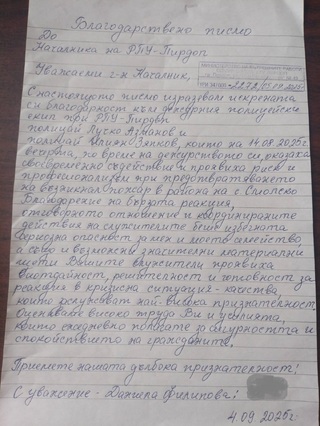 Благодарствено писмо
До
Началника на РПУ-Пирдоп
Уважаеми г-н Началник,
С настоящото писмо изразявам искрената
си благодарност към дежурния полицейски
екип при РПУ-Пирдоп
полицай Луско
полицай Илиян, които на 14.08.2025г.
вечерта, по време на дежурството си, оказаха
своевременно съдействие и проявиха риск и
професионализъм при предотвратяването
на възникнал пожар в района на с.
Благодарение на бързата реакция,
отговорното отношение и координираните
действия на служителите беше избегната
сериозна опасност за мен и моето семейство,
а също и възможни значителни материални
щети. Вашите служители проявиха
бдителност, решителност и готовност за
реакция в кризисна ситуация - качества
които заслужават най-висока признателност.
Оценявам високо труда Ви и усилията,
които ежедневно полагате за сигурността и
спокойствието на гражданите.
Приемете нашата дълбока признателност!
С уважение - Даниела Филипова:
4.09.2025г.